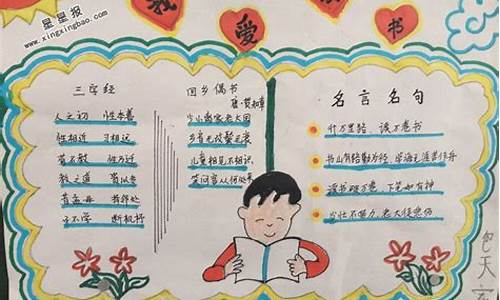 星星报
www.xingxingbao.com
我爱 书
三字经
人之初 性本善
性相近 习相远
苟不教 性乃迁
教之道 贵以专
昔孟母 择邻处
子不学 断机杼
回乡偶书
唐·贺知章
少小离家老大回
乡音无改鬓毛衰
儿童相见不相识
笑问客从何处来
名言名句
行万里路 读万卷书
书山有路勤为径 学海无涯苦作舟
读书破万卷 下笔如有神
少壮不努力 老大徒悲伤
包天